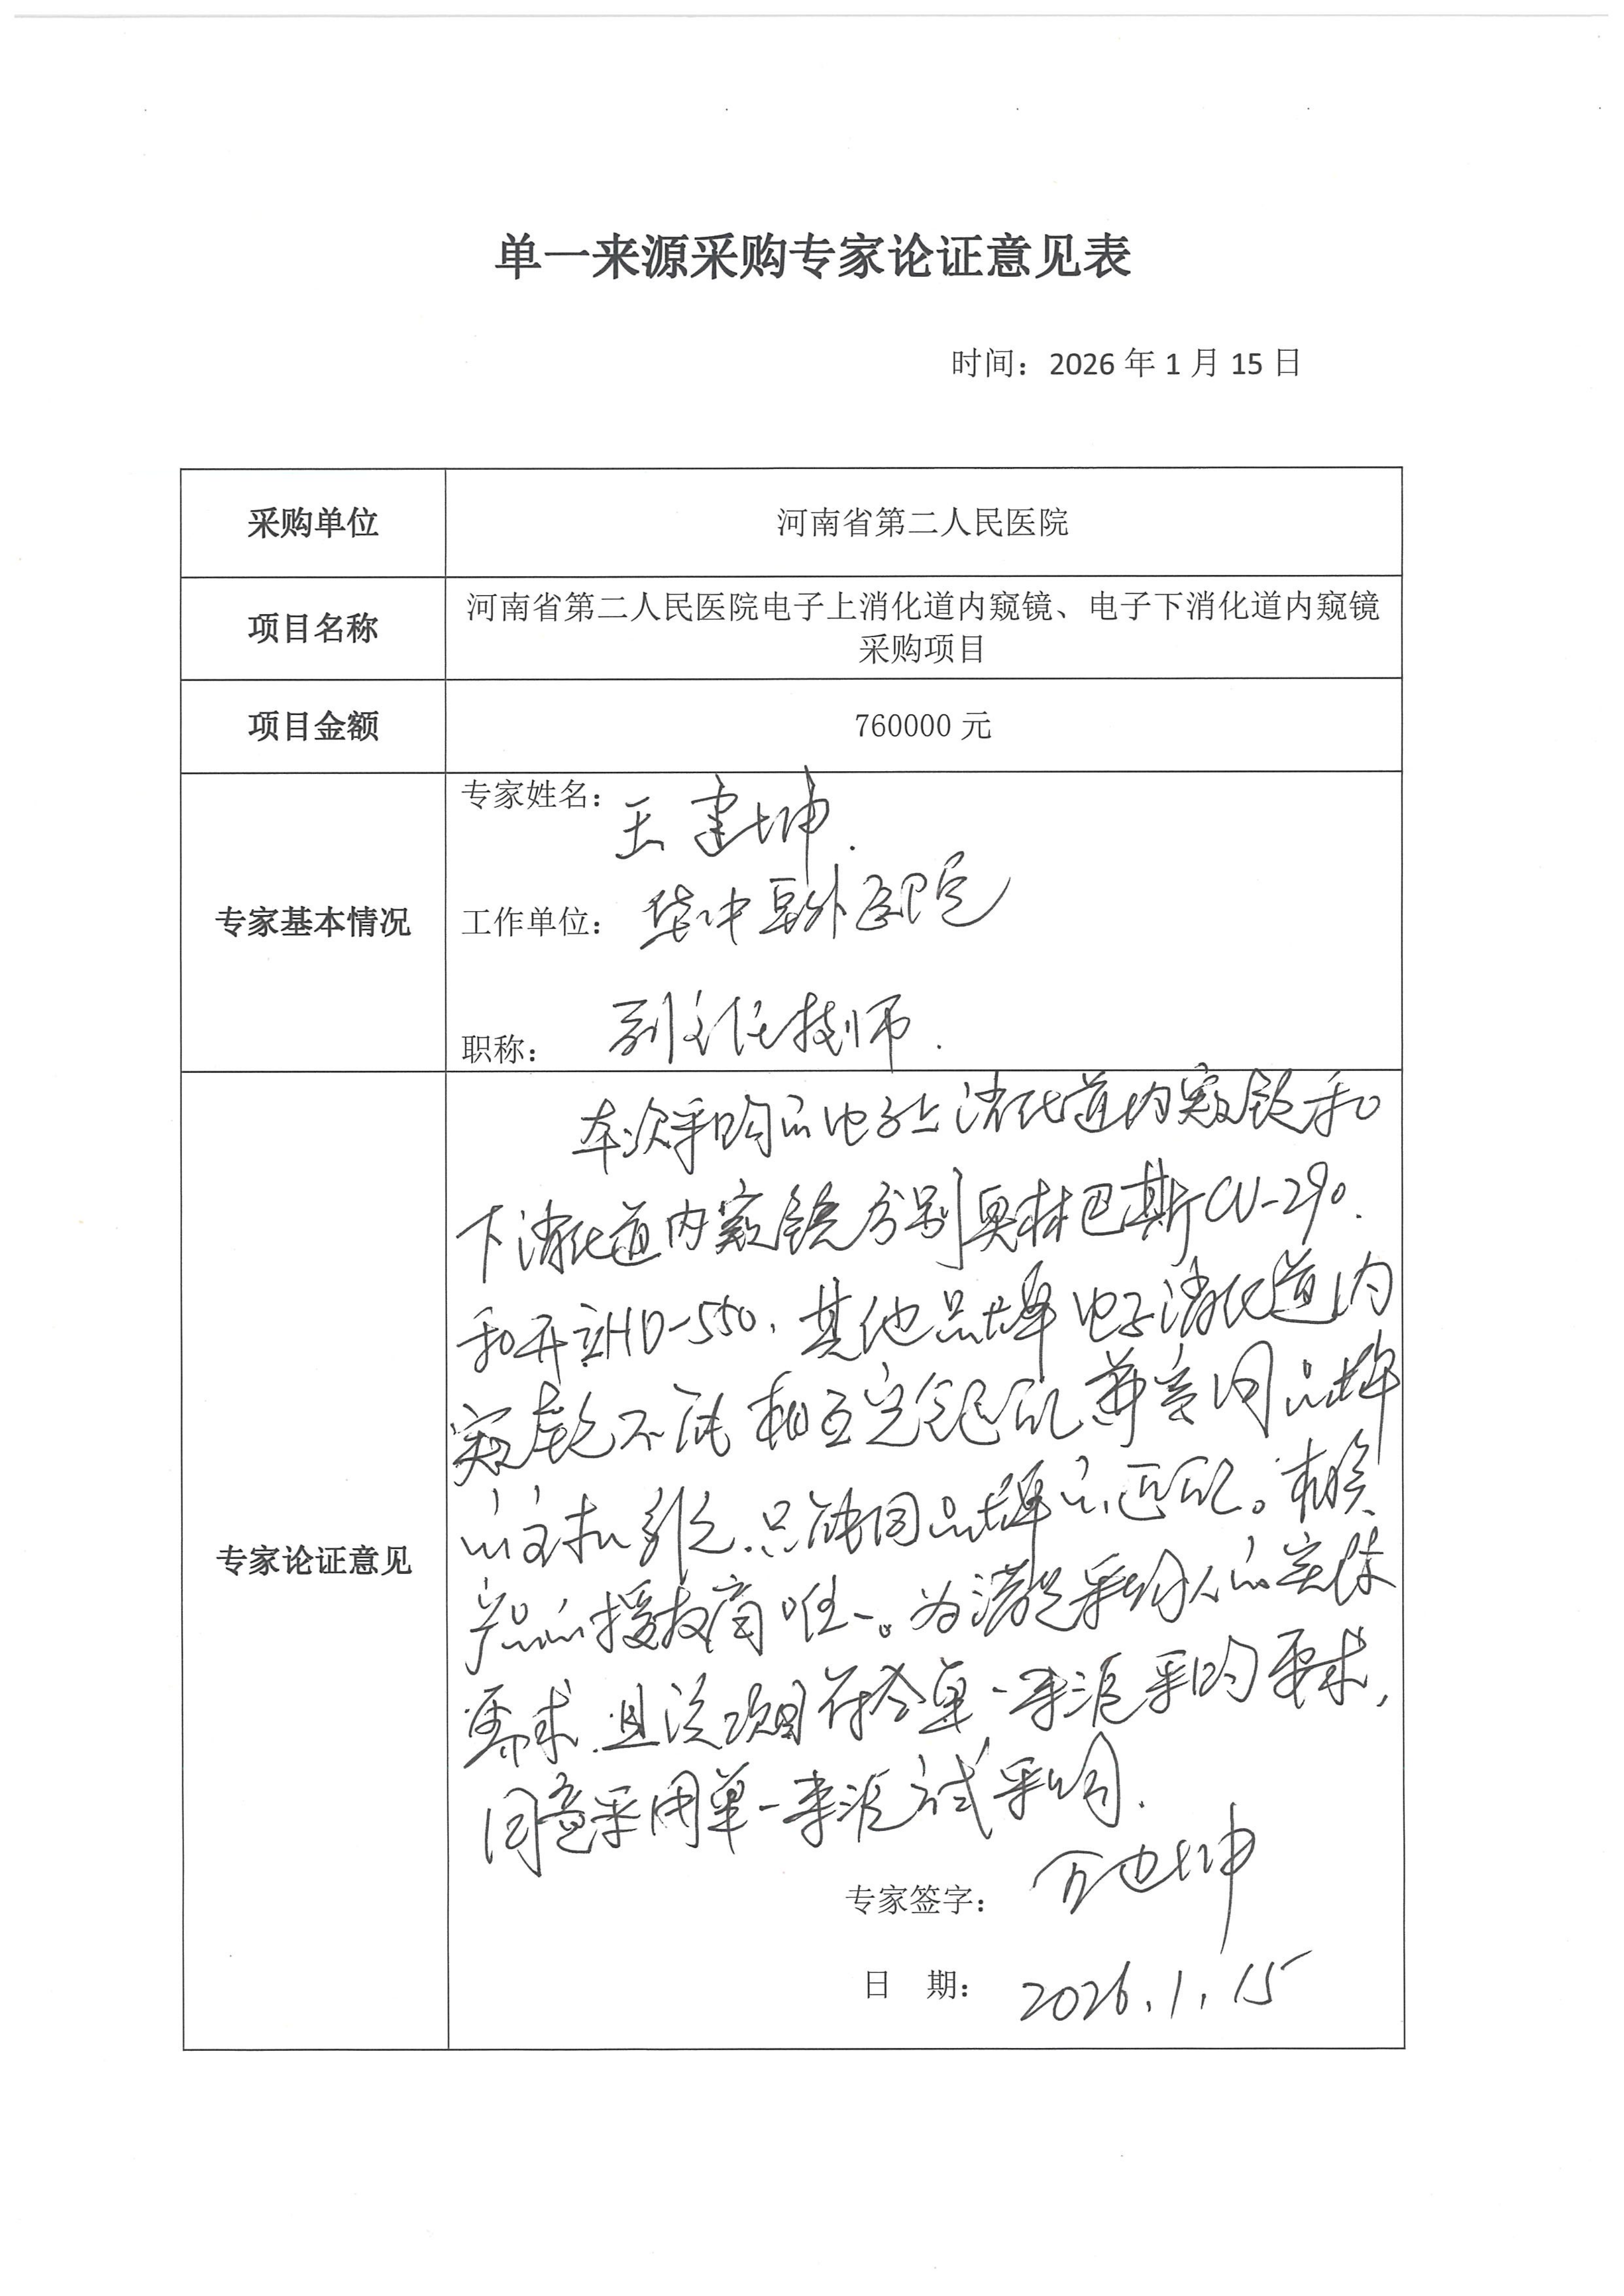 单一来源采购专家论证意见表
时间：2026 年 1 月 15 日
采购单位
河南省第二人民医院
项目名称
河南省第二人民医院电子上消化道内窥镜、电子下消化道内窥镜
采购项目
项目金额
760000 元
专家基本情况
专家姓名：王建坤
工作单位：华中阜外医院
职称：副主任技师
专家论证意见
本次采购的电子上消化道内窥镜和
下消化道内窥镜分别奥林巴斯CV-290.
和开立HD-550，其他品牌电子消化道内
窥镜不能相互完全匹配兼容同品牌
的主机系统，只能同品牌的匹配。相关
产品的授权商唯一。为满足采购人的实际
需求，且该项目符合单一来源采购要求，
同意采用单一来源方式采购.
专家签字：王建坤
日 期：2026.1.15